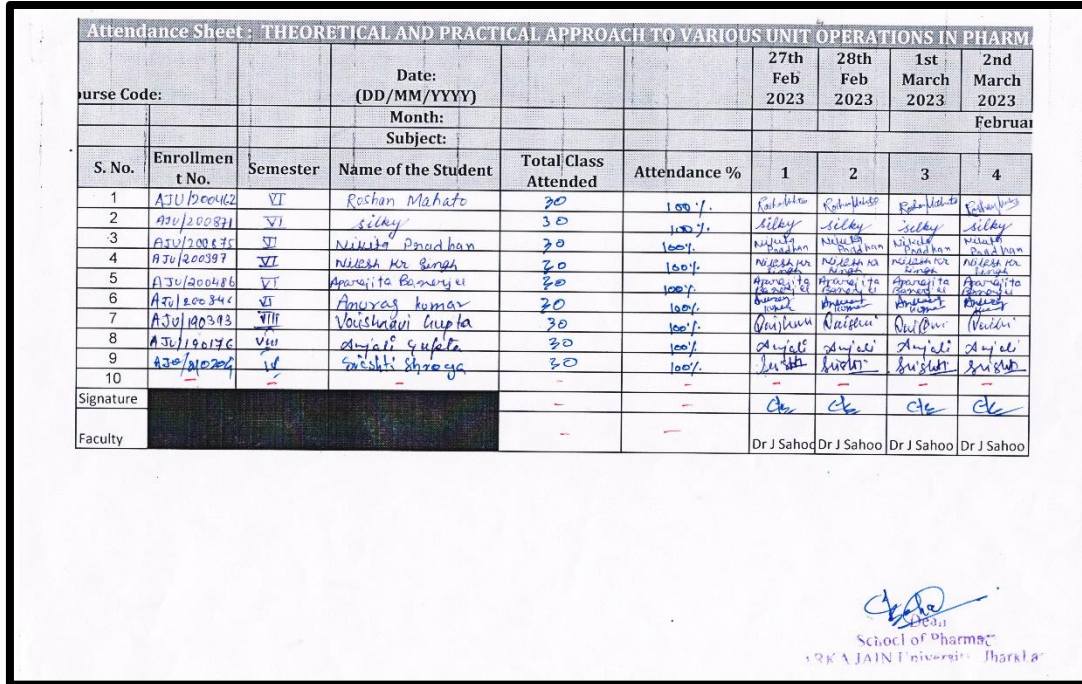 Attendance Sheet : THEORETICAL AND PRACTICAL APPROACH TO VARIOUS UNIT OPERATIONS IN PHARM
urse Code: Date: (DD/MM/YYYY) 27th Feb 2023 28th Feb 2023 1st March 2023 2nd March 2023
Month: Februar
Subject:
S. No. Enrollmen t No. Semester Name of the Student Total Class Attended Attendance % 1 2 3 4
1 AJU/200462 VI Roshan Mahato 30 100%
2 AJU/200871 VI silky 30 100% silky silky silky silky
3 AJU/200875 VI Nikita Pradhan 30 100% Nikita Pradhan Nikita Pradhan Nikita Pradhan Nikita Pradhan
4 AJU/200397 VI Nilesh Kr Singh 30 100% Nilesh Kr Singh Nilesh Kr Singh Nilesh Kr Singh Nilesh Kr Singh
5 AJU/200486 VI Aparajita Banerjee 30 100% Aparajita Banerjee Aparajita Banerjee Aparajita Banerjee Aparajita Banerjee
6 AJU/200346 VI Anurag kumar 30 100%
7 AJU/190393 VIII Vaishnavi Gupta 30 100%
8 AJU/190176 VIII Anjali Gupta 30 100% Anjali Anjali Anjali Anjali
9 Srishti 30 100% Srishti Srishti Srishti Srishti
10 – – – – – – – – –
Signature – –
Faculty – – Dr J Sahoo Dr J Sahoo Dr J Sahoo Dr J Sahoo
Dean
School of Pharmac
ARKA JAIN University Jharkha